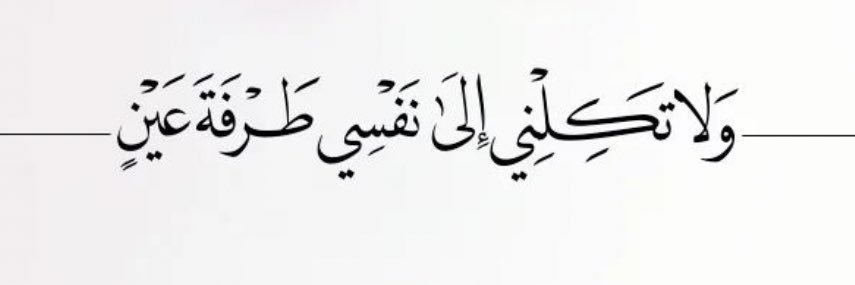 وَلا تَكِلْنِي إِلَىٰ نَفْسِي طَرْفَةَ عَيْنٍ